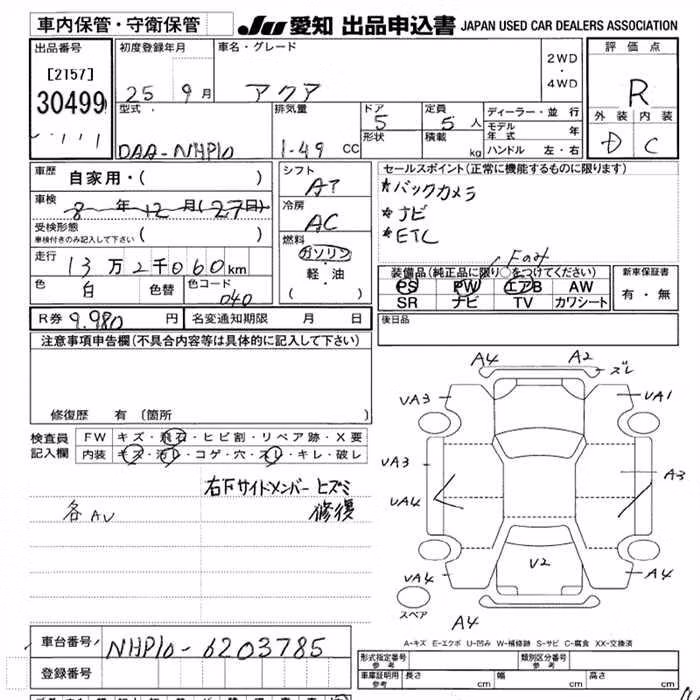 車内保管・守衛保管 JU 愛知 出品申込書 JAPAN USED CAR DEALERS ASSOCIATION
出品番号 初度登録年月 車名・グレード 2WD・4WD 評価点
[2157] 25 9月 アクア R
30499 型式 排気量 ドア 5 定員 5人 ディーラー・並行 外装 内装
形状 積載 kg モデル年式 年
DAA-NHP10 1-49 CC ハンドル 左・右 D C
車歴 自家用・( ) シフト AT セールスポイント(正常に機能するものに限ります)
車検 8年12月(27日) 冷房 AC *バックカメラ
受検形態 ( ) *ナビ
車検付きのみ記入して下さい *ETC
走行 13万2千060km 燃料 ガソリン・軽・油 ( ) Fのみ
色 白 色替 色コード 040 装備品(純正品に限り○をつけてください) 新車保証書
PS PW エアB AW 有・無
SR ナビ TV カワシート
R券 9.980円 名変通知期限 月 日 後日品
注意事項申告欄(不具合内容等は具体的に記入して下さい)
修復歴 有(箇所 )
検査員記入欄 FW キズ・飛石・ヒビ割・リペア跡・X要
内装 キズ・汚レ・コゲ・穴・スレ・キレ・破レ
右下サイドメンバー ヒズミ
各AU 修復
A4 A2 ズレ
UA3 UA1
UA3 A3
UA4
U2
UA4 A4
スペア A4
A-キズ E-エクボ U-凹み W-補修跡 S-サビ C-腐食 XX-交換済
車台番号 NHP10-6203785
登録番号
形式指定番号 参考 類別区分番号 参考
車庫証明用 参考 長さ cm 幅 cm 高さ cm